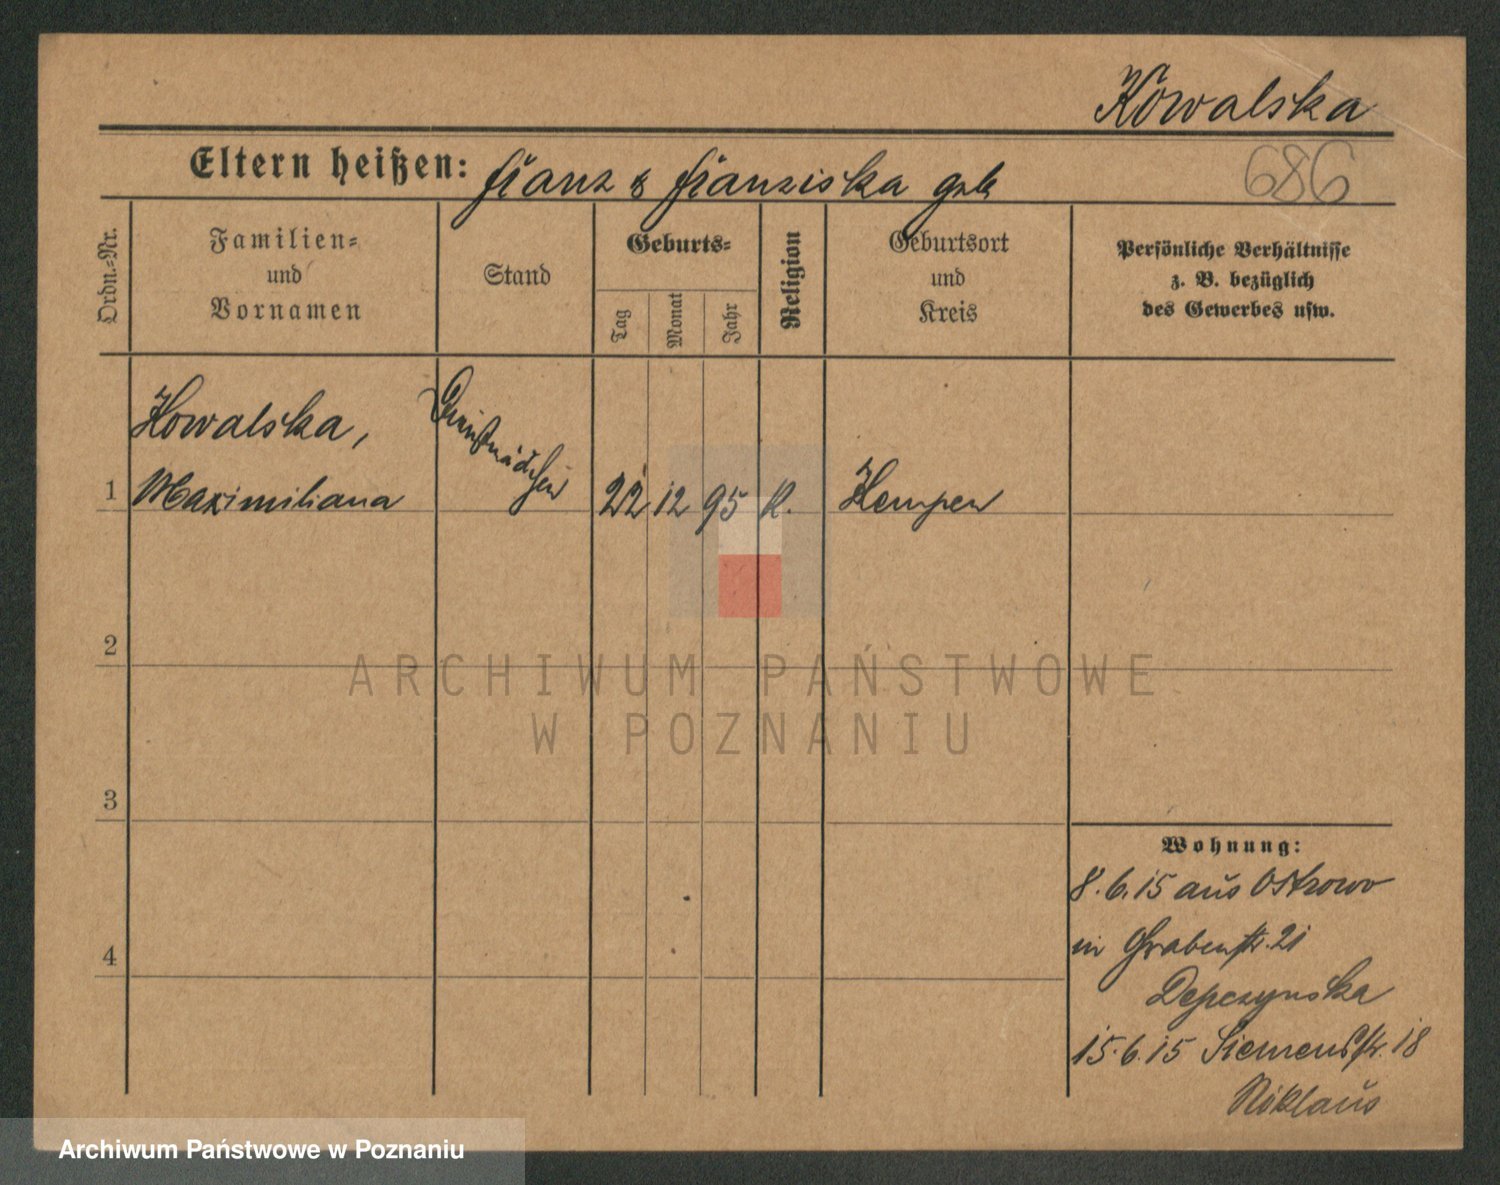 Kowalska
Eltern heißen: Franz & Franziska geb
686
Ordn.-Nr.
Familien-
und
Vornamen
Stand
Geburts-
Tag
Monat
Jahr
Religion
Geburtsort
und
Kreis
Persönliche Verhältnisse
z. B. bezüglich
des Gewerbes usw.
Kowalska,
Dienstmädchen
1 Maximiliana 22 12 95 K. Kempen
2
ARCHIWUM PAŃSTWOWE
W POZNANIU
3
Wohnung:
8.6.15 aus Ostrowo
in Grabenstr. 21
4
Depczynska
15.6.15 Siemensstr. 18
Niklaus
Archiwum Państwowe w Poznaniu